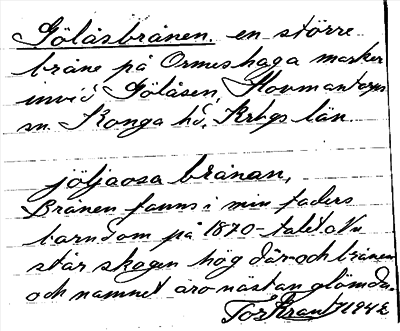 Gölåsbrånen. en större
bråne på Ormeshaga marker
invid Gölåsen, Hovmantorps
sn. Konga hd. Krbgs län.
jöljaosa brånan,
Brånen fanns i min faders
barndom på 1870-talet. Nu
står skogen hög där och brånen
och namnet äro nästan glömda.
1942